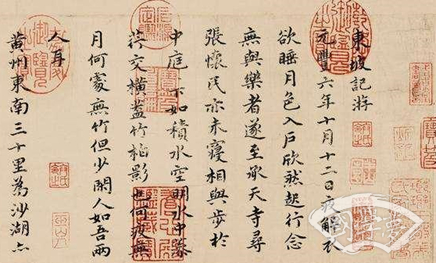 東坡記游
元豐六年十月十二日夜解衣
欲睡月色入戶欣然起行念
無與樂者遂至承天寺尋
張懷民亦未寢相與步於
中庭下如積水空明水中藻
荇交橫蓋竹柏影也何夜無
月何處無竹但少閑人如吾兩
人耳
黄州東南三十里為沙湖亦
國學夢